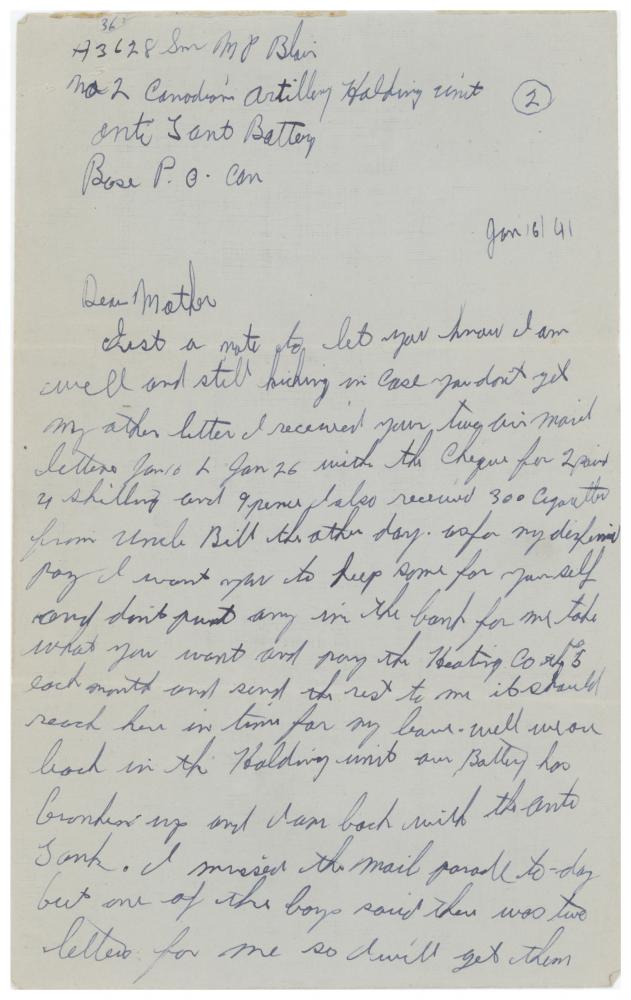 36
A3628 Gnr M P Blair
No 2 Canadian Artillery Holding unit
(2)
Anti Tank Battery
Base P. O. Can
Jan 16/41
Dear Mother
Just a note to let you know I am
well and still kicking in case you dont get
my other letter I received your two air mail
letters Jan 10 & Jan 26 with the Cheque for 2
4 shilling and 9 pence I also received 300 cigarettes
from Uncle Bill the other day. as for my
pay I want you to keep some for yourself
and dont put any in the bank for me take
what you want and pay the Heating Co
each month and send the rest to me it should
reach here in time for my leave. well we are
back in the Holding unit our Battery has
broken up and I am back with the anti
Tank. I missed the mail parade to-day
but one of the boys said there was two
letters for me so I will get them